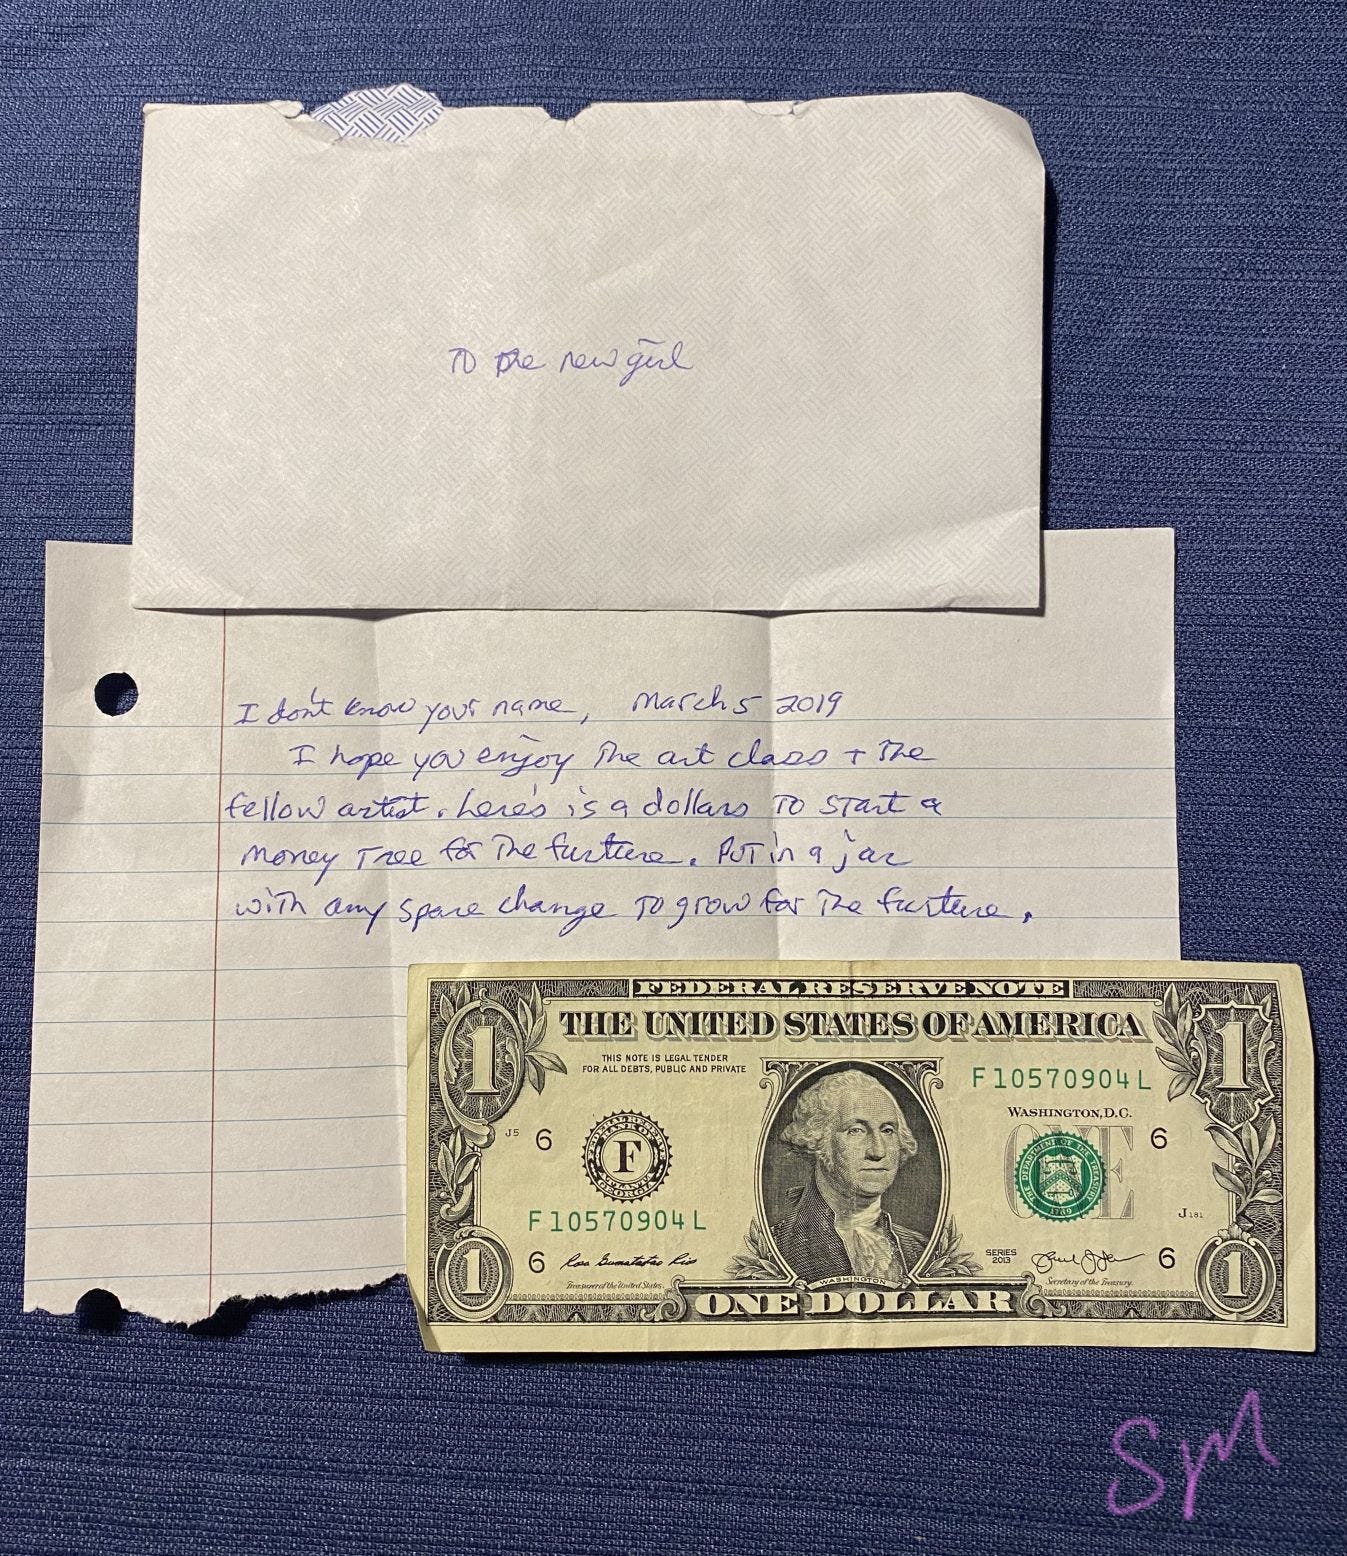 To the new girl
I don't know your name, March 5 2019
I hope you enjoy the art class + the
fellow artist. here's is a dollars to start a
money tree for the furture. Put in a jar
with any spare change to grow for the furture.
FEDERAL RESERVE NOTE
THE UNITED STATES OF AMERICA
THIS NOTE IS LEGAL TENDER
FOR ALL DEBTS, PUBLIC AND PRIVATE
F 10570904 L
WASHINGTON, D.C.
1 1
J5 6 F 6
ONE
THE DEPARTMENT OF THE TREASURY
1789
F 10570904 L
J 181
6 Rosa Gumataotao Rios SERIES 2013 6
Treasurer of the United States. Secretary of the Treasury.
WASHINGTON
1 ONE DOLLAR 1
SyM